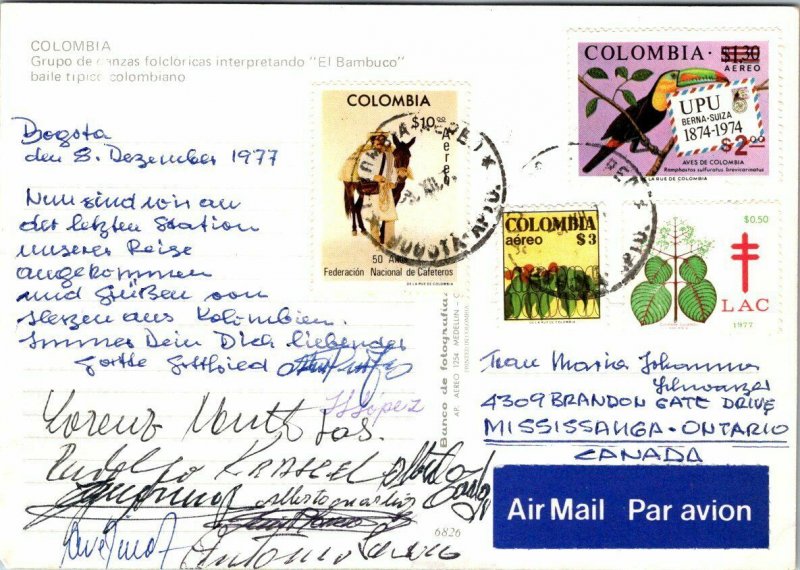 COLOMBIA
Grupo de danzas folclóricas interpretando "El Bambuco"
baile típico colombiano
Bogota
den 8. Dezember 1977
Nun sind wir an
der letzten Station
unserer Reise
angekommen
und grüßen von
Herzen aus Kolombien.
Immer Dein Dich liebender
Gatte Gottfried
Lorenz
Rudolfo
Antonio
COLOMBIA
$10.00
Aereo
50 Años
Federación Nacional de Cafeteros
DE LA RUE DE COLOMBIA
COLOMBIA · $1.30
AEREO
UPU
BERNA-SUIZA
1874-1974
$2.00
AVES DE COLOMBIA
Ramphastos sulfuratus brevicarinatus
DE LA RUE DE COLOMBIA
COLOMBIA
aéreo $3
DE LA RUE DE COLOMBIA
$0.50
LAC
1977
BOGOTA
Banco de fotografias
AP. AEREO 1254 MEDELLIN - C
Frau Maria Johanna
Schwarzer
4309 BRANDON GATE DRIVE
MISSISSAUGA - ONTARIO
CANADA
Air Mail Par avion
6826